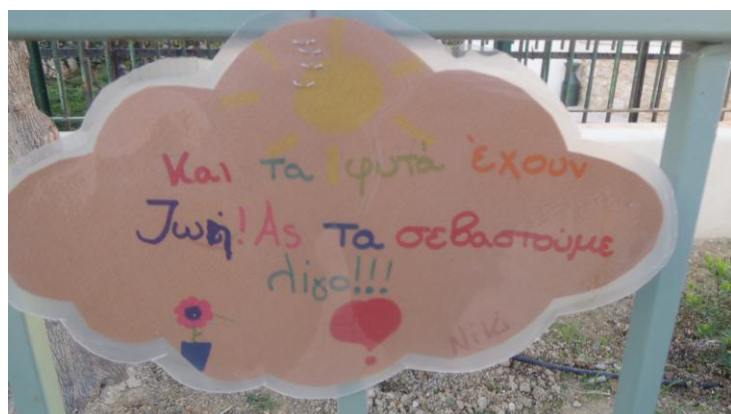 Και τα φυτά έχουν
Ζωή! Ας τα σεβαστούμε
λίγο!!!
Niki